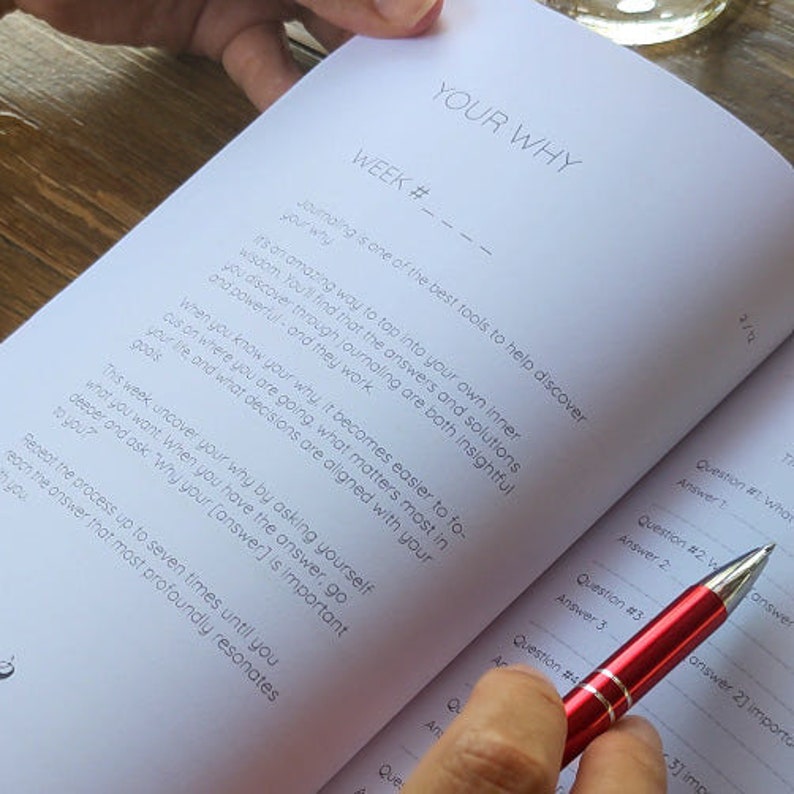 YOUR WHY
WEEK # _ _ _ _
Journaling is one of the best tools to help discover
your why.
It's an amazing way to tap into your own inner
wisdom. You'll find that the answers and solutions
you discover through journaling are both insightful
and powerful - and they work.
When you know your why, it becomes easier to fo-
cus on where you are going, what matters most in
your life, and what decisions are aligned with your
goals.
This week, uncover your why by asking yourself
what you want. When you have the answer, go
deeper and ask: "Why your [answer] is important
to you?"
Repeat the process up to seven times until you
reach the answer that most profoundly resonates
with you.
Question #1. What
Answer 1.
Question #2. W
answer
Answer 2.
Question #3
answer 2] important
Answer 3.
Question #4
3] important
Answer
Question